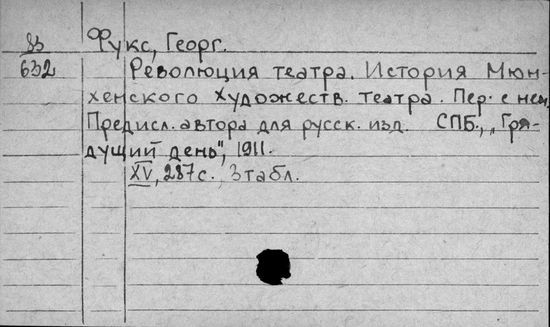 83 Фукс, Георг.
632 Революция театра. История Мюн-
хенского Художеств. театра. Пер. с нем.
Предисл. автора для русск. изд. СПБ., "Гря-
дущий день", 1911.
XV, 287с., 3табл.